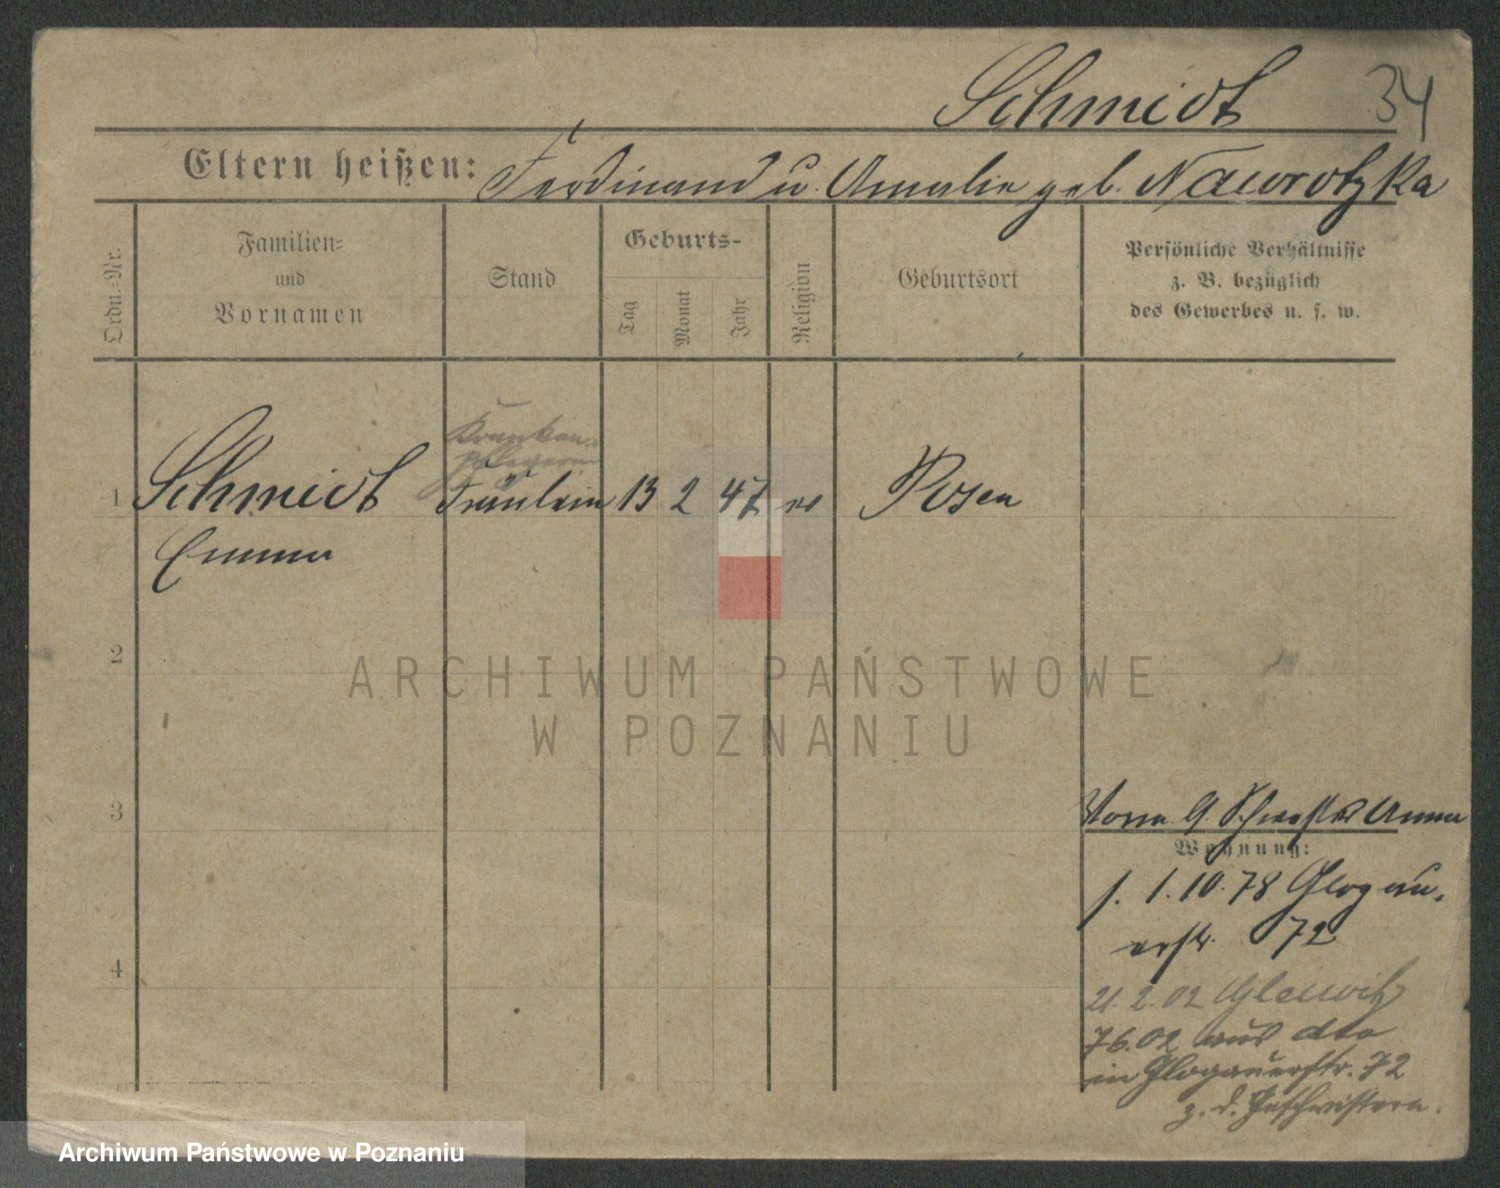 Schmidt 34
Eltern heißen: Ferdinand u. Amalie geb. Nawrotzka
Ordn.-Nr.
Familien-
und
Vornamen
Stand
Geburts-
Tag
Monat
Jahr
Religion
Geburtsort
Persönliche Verhältnisse
z. B. bezüglich
des Gewerbes u. s. w.
Kranken-
pflegerin
1 Schmidt Fräulein 13 2 47 ev Posen
Emma
2
ARCHIWUM PAŃSTWOWE
W POZNANIU
3
Schwester Anna
Wohnung:
s. 1.10.78 Glogau-
erstr. 72
4
21.2.02 Gleiwitz
7 6.02 aus dto
in Glogauerstr. 72
z. d. Geschwistern.
Archiwum Państwowe w Poznaniu